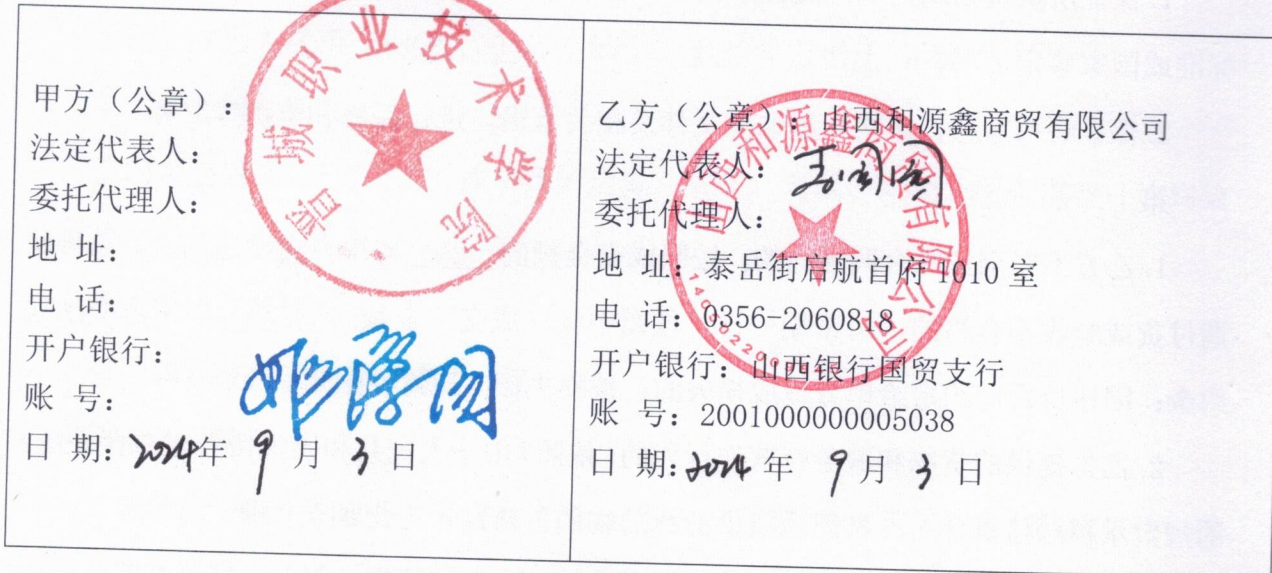 晋城职业技术学院
甲方（公章）:
法定代表人:
委托代理人:
地 址:
电 话:
开户银行:
账 号:
日 期: 2024年 9 月 3 日
乙方（公章）: 山西和源鑫商贸有限公司
法定代表人:
委托代理人:
地 址: 泰岳街启航首府 1010 室
电 话: 0356-2060818
开户银行: 山西银行国贸支行
账 号: 2001000000005038
日 期: 2024 年 9 月 3 日
山西和源鑫商贸有限公司